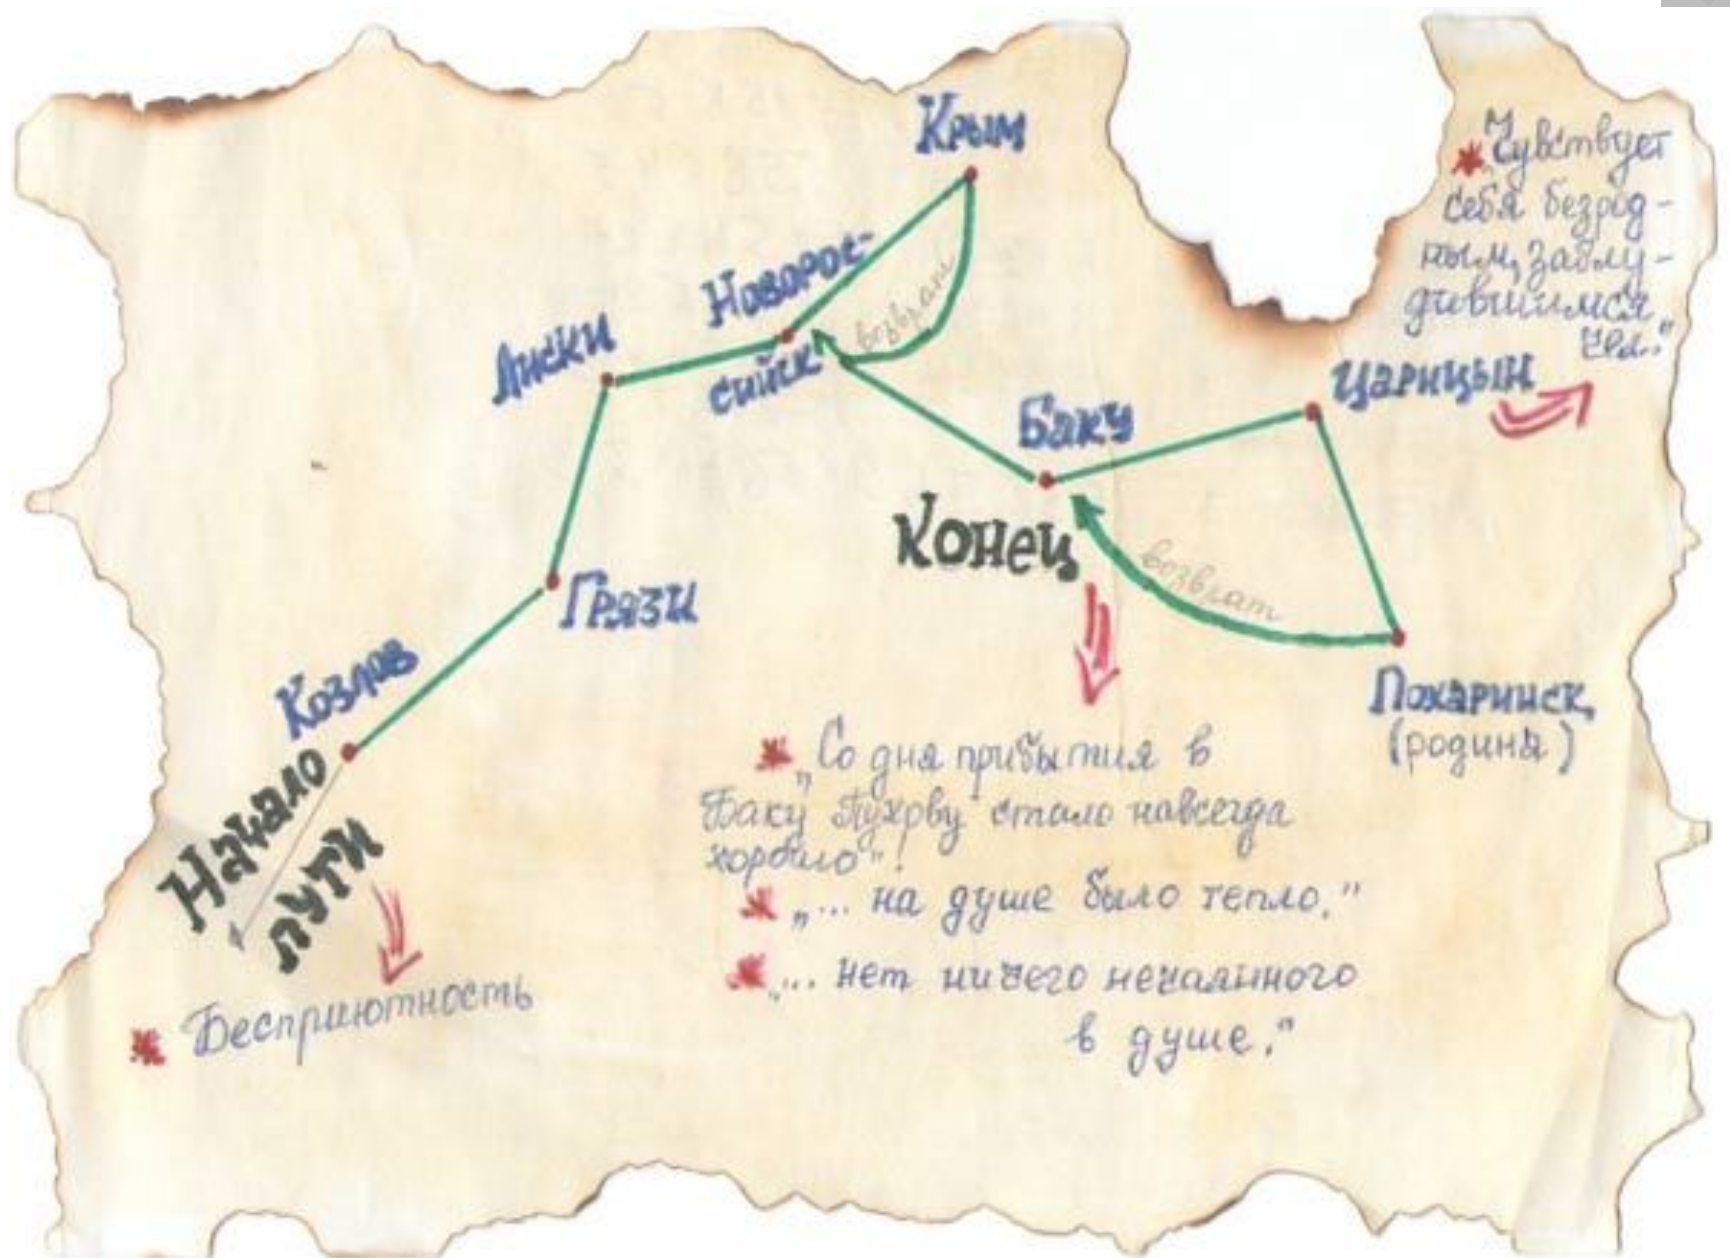 Крым
„Чувствует
себя безрод-
ным, заблу-
дившимся
чел."
Новорос-
сийск
возврат
Лиски
Царицын
Баку
Конец
возврат
Грязи
Козлов
Похаринск
(родина)
Начало
пути
„Со дня прибытия в
Баку Пухову стало навсегда
хорошо".
„... на душе было тепло."
„... нет ничего нечаянного
в душе."
Бесприютность